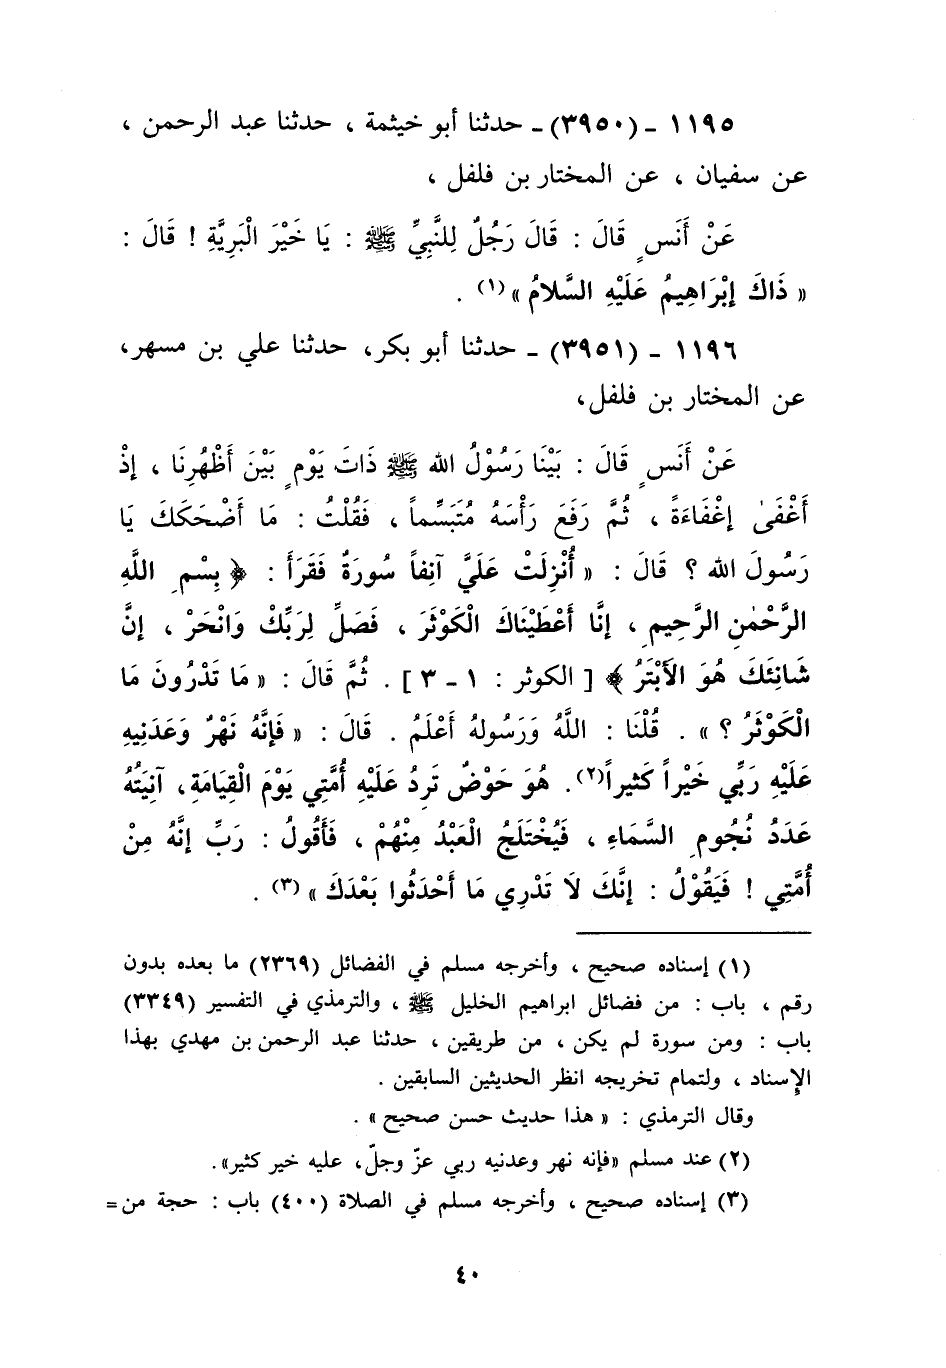 ١١٩٥ - (٣٩٥٠) - حدثنا أبو خيثمة ، حدثنا عبد الرحمن ،
عن سفيان ، عن المختار بن فلفل ،
عَنْ أَنَسٍ قَالَ : قَالَ رَجُلٌ لِلنَّبِيِّ ﷺ : يَا خَيْرَ الْبَرِيَّةِ ! قَالَ :
« ذَاكَ إِبْرَاهِيمُ عَلَيْهِ السَّلامُ »(١) .
١١٩٦ - (٣٩٥١) - حدثنا أبو بكر، حدثنا علي بن مسهر،
عن المختار بن فلفل،
عَنْ أَنَسٍ قَالَ : بَيْنَا رَسُوْلُ الله ﷺ ذَاتَ يَوْمٍ بَيْنَ أَظْهُرِنَا ، إِذْ
أَغْفَىٰ إِغْفَاءَةً ، ثُمَّ رَفَعَ رَأْسَهُ مُتَبَسِّماً ، فَقُلْتُ : مَا أَضْحَكَكَ يَا
رَسُولَ الله ؟ قَالَ : « أُنْزِلَتْ عَلَيَّ آنِفاً سُورَةٌ فَقَرَأَ : ﴿ بِسْمِ اللَّهِ
الرَّحْمٰنِ الرَّحِيمِ ، إِنَّا أَعْطَيْنَاكَ الْكَوْثَرَ ، فَصَلِّ لِرَبِّكَ وَانْحَرْ ، إِنَّ
شَانِئَكَ هُوَ الأَبْتَرُ ﴾ [ الكوثر : ١ - ٣ ] . ثُمَّ قَالَ : « مَا تَدْرُونَ مَا
الْكَوْثَرُ ؟ » . قُلْنَا : اللَّهُ وَرَسُولهُ أَعْلَمُ . قَالَ : « فَإِنَّهُ نَهْرٌ وَعَدَنِيهِ
عَلَيْهِ رَبِّي خَيْراً كَثيراً(٢). هُوَ حَوْضٌ تَرِدُ عَلَيْهِ أُمَّتِي يَوْمَ الْقِيَامَةِ، آنِيَتُهُ
عَدَدُ نُجُومِ السَّمَاءِ ، فَيُخْتَلَجُ الْعَبْدُ مِنْهُمْ ، فَأَقُولُ : رَبِّ إِنَّهُ مِنْ
أُمَّتِي ! فَيَقُوْلُ : إِنَّكَ لَا تَدْرِي مَا أَحْدَثُوا بَعْدَكَ »(٣) .
(١) إسناده صحيح ، وأخرجه مسلم في الفضائل (٢٣٦٩) ما بعده بدون
رقم ، باب : من فضائل ابراهيم الخليل ﷺ ، والترمذي في التفسير (٣٣٤٩)
باب : ومن سورة لم يكن ، من طريقين ، حدثنا عبد الرحمن بن مهدي بهذا
الإِسناد ، ولتمام تخريجه انظر الحديثين السابقين .
وقال الترمذي : « هذا حديث حسن صحيح » .
(٢) عند مسلم «فإنه نهر وعدنيه ربي عزّ وجلّ، عليه خير كثير».
(٣) إسناده صحيح ، وأخرجه مسلم في الصلاة (٤٠٠) باب : حجة من=
٤٠